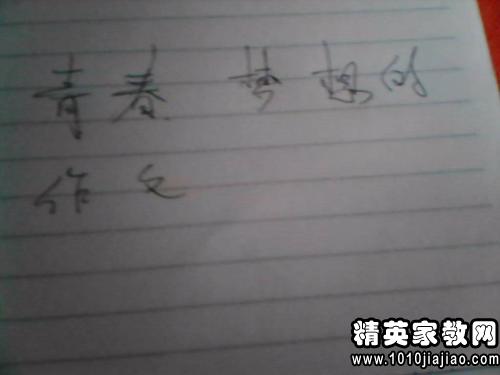 青春 梦想的
作文
精英家教网
www.1010jiajiao.com